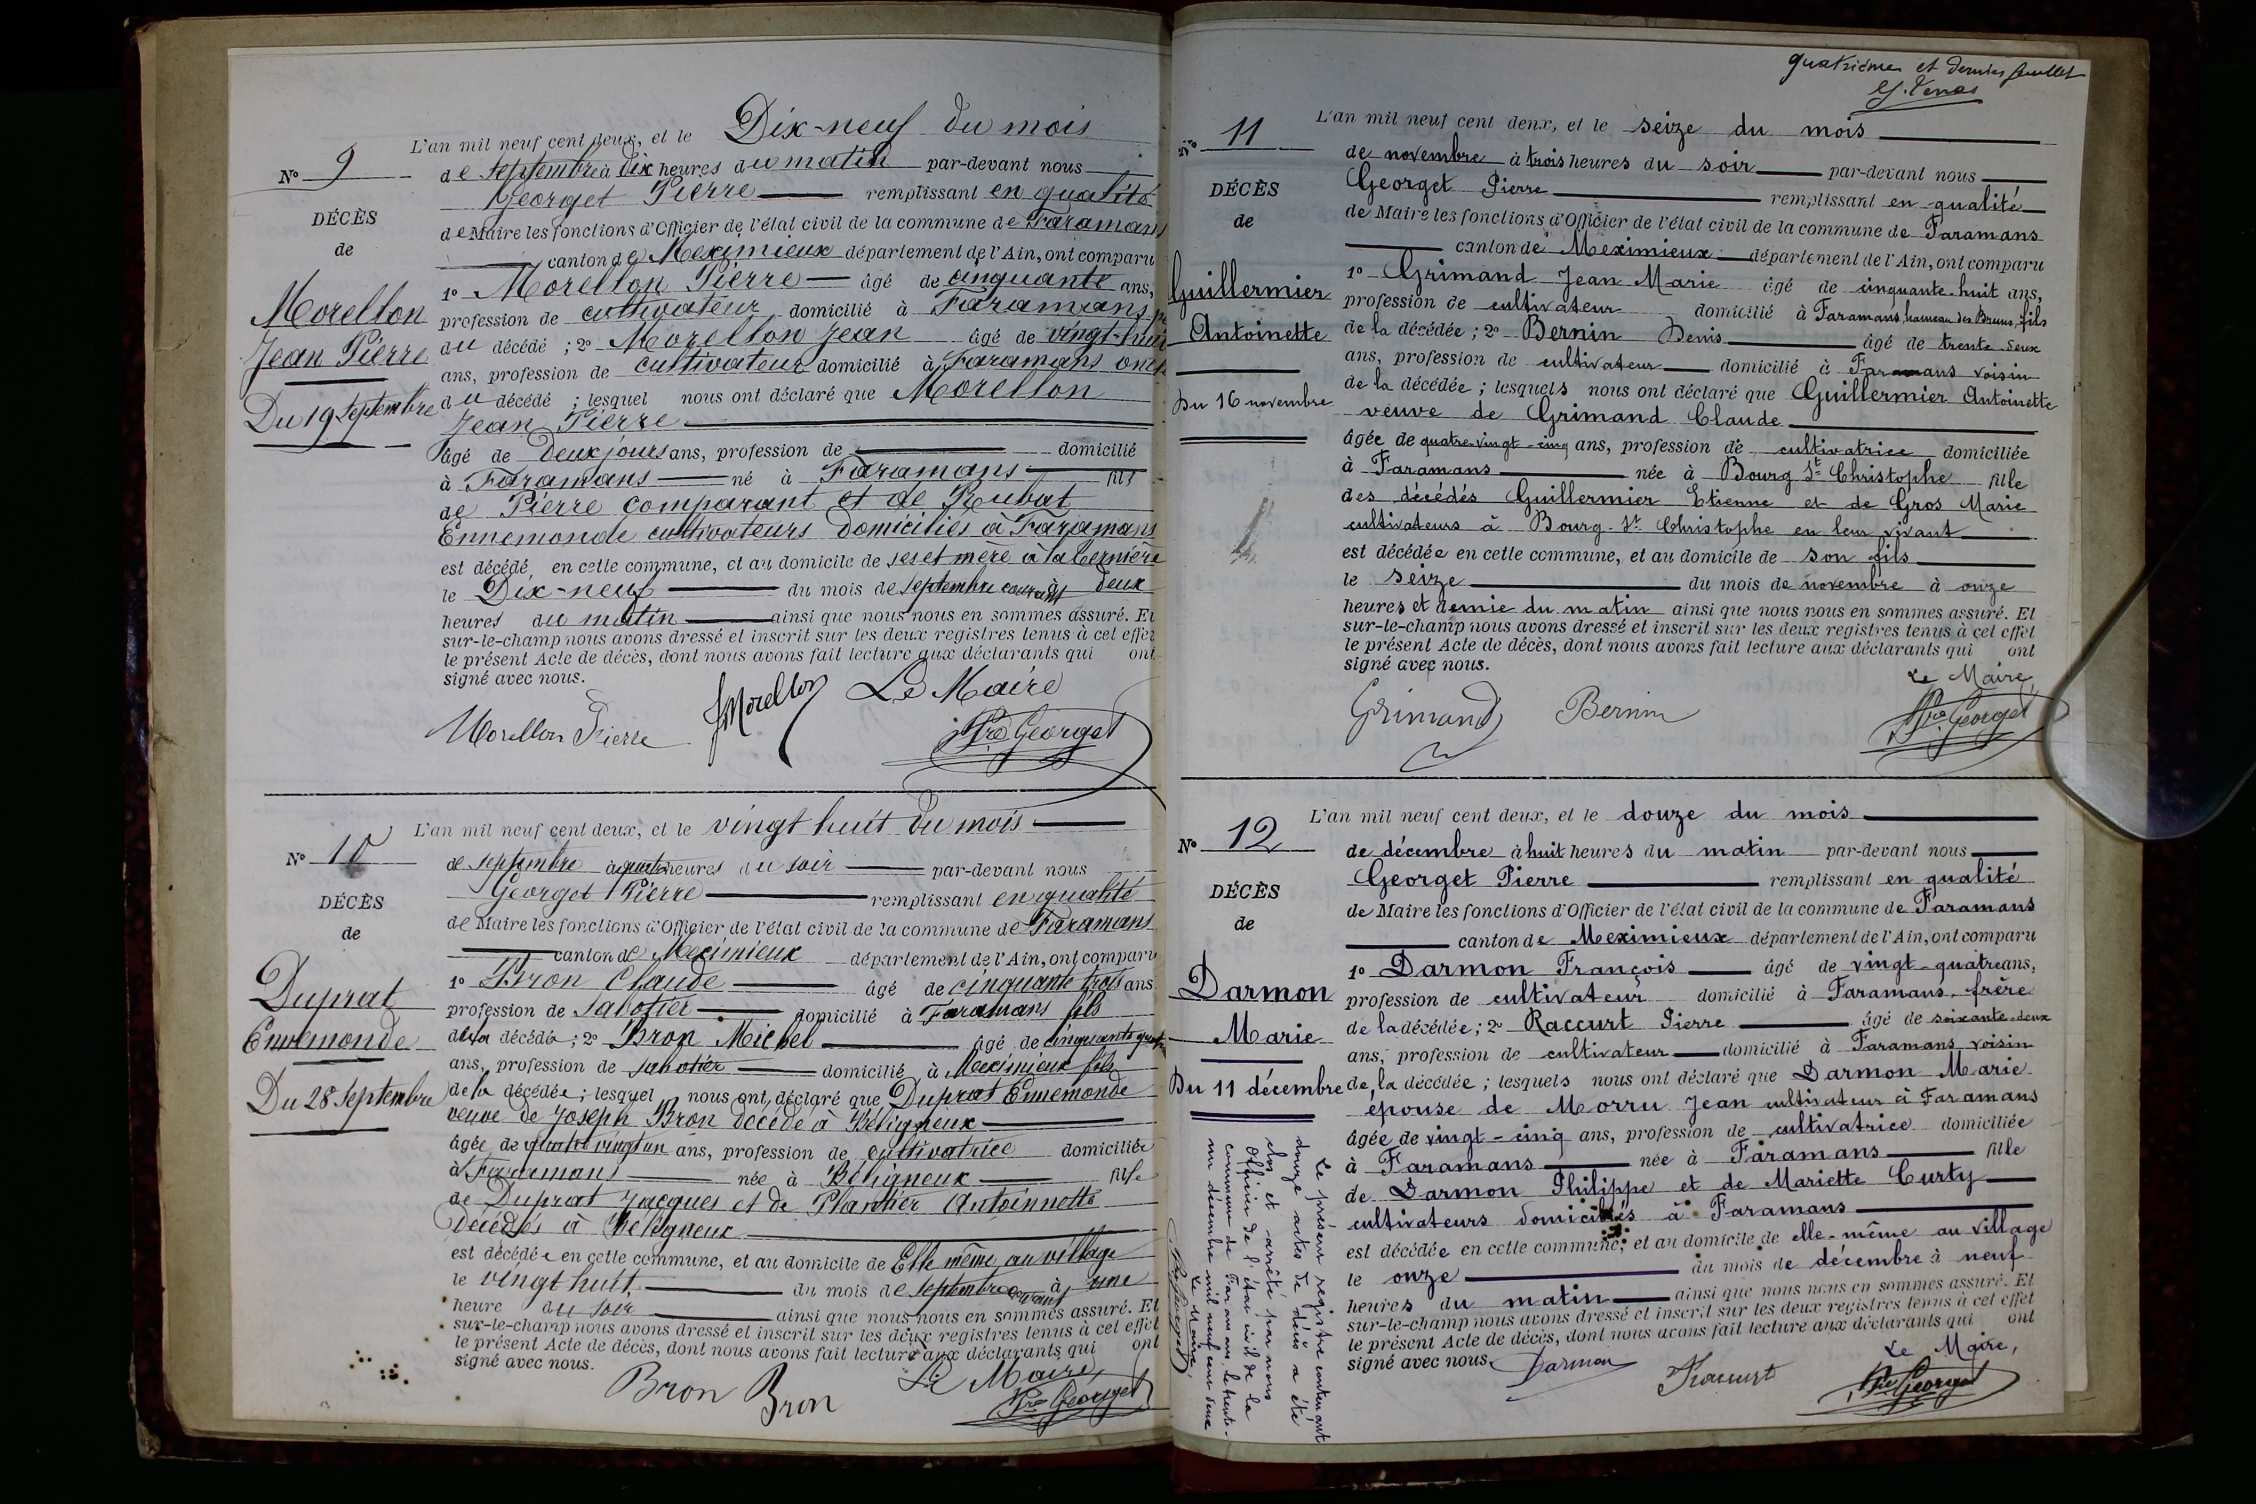 L'an mil neuf cent deux, et le Dix-neuf du mois
No 9
de septembre à dix heures du matin par-devant nous
Georget Pierre remplissant en qualité
DÉCÈS
de Maire les fonctions d'Officier de l'état civil de la commune de Faramans
de
canton de Meximieux département de l'Ain, ont comparu
1o Morellon Pierre âgé de cinquante ans,
Morellon
profession de cultivateur domicilié à Faramans
Jean Pierre
du décédé ; 2o Morellon Jean âgé de vingt-huit
ans, profession de cultivateur domicilié à Faramans oncle
Du 19 septembre
du décédé ; lesquel nous ont déclaré que Morellon
Jean Pierre
âgé de Deux jours ans, profession de domicilié
à Faramans né à Faramans fils
de Pierre comparant et de Rubat
Ennemonde cultivateurs domiciliés à Faramans
est décédé en cette commune, et au domicile de ses et mère à la
le Dix-neuf du mois de septembre courant à deux
heures du matin ainsi que nous nous en sommes assuré. Et
sur-le-champ nous avons dressé et inscrit sur les deux registres tenus à cet effet
le présent Acte de décès, dont nous avons fait lecture aux déclarants qui ont
signé avec nous.
Morellon Pierre JMorellon Le Maire
Pre Georget
L'an mil neuf cent deux, et le vingt huit du mois
No 10
de septembre à quatre heures du soir par-devant nous
Georget Pierre remplissant en qualité
DÉCÈS
de Maire les fonctions d'Officier de l'état civil de la commune de Faramans
de
canton de Meximieux département de l'Ain, ont comparu
1o Bron Claude âgé de cinquante trois ans
Duprat
profession de sabotier domicilié à Faramans fils
Ennemonde
de la décédé ; 2o Bron Michel âgé de cinquante quatre
ans, profession de sabotier domicilié à Meximieux fils
Du 28 septembre
de la décédée ; lesquel nous ont déclaré que Duprat Ennemonde
veuve de Joseph Bron décédé à Béligneux
âgée de quatre vingt un ans, profession de cultivatrice domiciliée
à Faramans née à Béligneux fille
de Duprat Jacques et de Plantier Antoinnette
Décédés à Béligneux
est décédée en cette commune, et au domicile de Elle même au village
le vingt huit du mois de septembre courant à une
heure du soir ainsi que nous nous en sommes assuré. Et
sur-le-champ nous avons dressé et inscrit sur les deux registres tenus à cet effet
le présent Acte de décès, dont nous avons fait lecture aux déclarants qui ont
signé avec nous.
Bron Bron Le Maire,
Pre Georget
quatrième et dernier feuillet
L'an mil neuf cent deux, et le seize du mois
No 11
de novembre à trois heures du soir par-devant nous
Georget Pierre remplissant en qualité
DÉCÈS
de Maire les fonctions d'Officier de l'état civil de la commune de Faramans
de
canton de Meximieux département de l'Ain, ont comparu
1o Grimand Jean Marie âgé de cinquante-huit ans,
Guillermier
profession de cultivateur domicilié à Faramans, hameau des Bruns, fils
Antoinette
de la décédée ; 2o Bernin Denis âgé de trente-deux
ans, profession de cultivateur domicilié à Faramans voisin
Du 16 novembre
de la décédée ; lesquels nous ont déclaré que Guillermier Antoinette
veuve de Grimand Claude
âgée de quatre-vingt-cinq ans, profession de cultivatrice domiciliée
à Faramans née à Bourg St Christophe fille
des décédés Guillermier Etienne et de Gros Marie
cultivateurs à Bourg-St Christophe en leur vivant
est décédée en cette commune, et au domicile de son fils
le seize du mois de novembre à onze
heures et demie du matin ainsi que nous nous en sommes assuré. Et
sur-le-champ nous avons dressé et inscrit sur les deux registres tenus à cet effet
le présent Acte de décès, dont nous avons fait lecture aux déclarants qui ont
signé avec nous.
Le Maire,
Grimand Bernin Pre Georget
L'an mil neuf cent deux, et le douze du mois
No 12
de décembre à huit heures du matin par-devant nous
Georget Pierre remplissant en qualité
DÉCÈS
de Maire les fonctions d'Officier de l'état civil de la commune de Faramans
de
canton de Meximieux département de l'Ain, ont comparu
1o Darmon François âgé de vingt-quatre ans,
Darmon
profession de cultivateur domicilié à Faramans frère
Marie
de la décédée ; 2o Raccurt Pierre âgé de soixante-deux
ans, profession de cultivateur domicilié à Faramans voisin
Du 11 décembre
de la décédée ; lesquels nous ont déclaré que Darmon Marie
épouse de Morru Jean cultivateur à Faramans
âgée de vingt-cinq ans, profession de cultivatrice domiciliée
à Faramans née à Faramans fille
de Darmon Philippe et de Mariette Curty
cultivateurs domiciliés à Faramans
est décédée en cette commune, et au domicile de elle-même au village
le onze du mois de décembre à neuf
heures du matin ainsi que nous nous en sommes assuré. Et
sur-le-champ nous avons dressé et inscrit sur les deux registres tenus à cet effet
le présent Acte de décès, dont nous avons fait lecture aux déclarants qui ont
signé avec nous.
Le Maire,
Darmon Raccurt Pre Georget
Le présent registre contenant
douze actes de décès a été
clos et arrêté par nous
Officier de l'état civil de la
commune de Faramans, le trente-
un décembre mil neuf cent deux
Le Maire,
Pre Georget